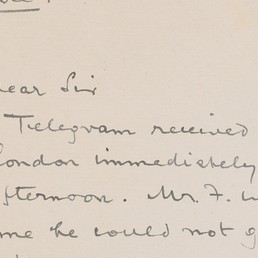 ear Sir
Telegram received
ondon immediately
fternoon. Mr. F. w
me he could not g